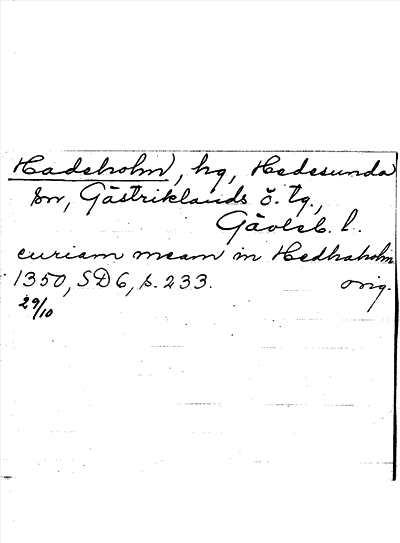 Hadeholm, hg, Hedesunda
sn, Gästriklands ö. tg.,
Gävleb. l.
curiam meam in Hedhaholm
1350, SD 6, s. 233. orig.
29/10